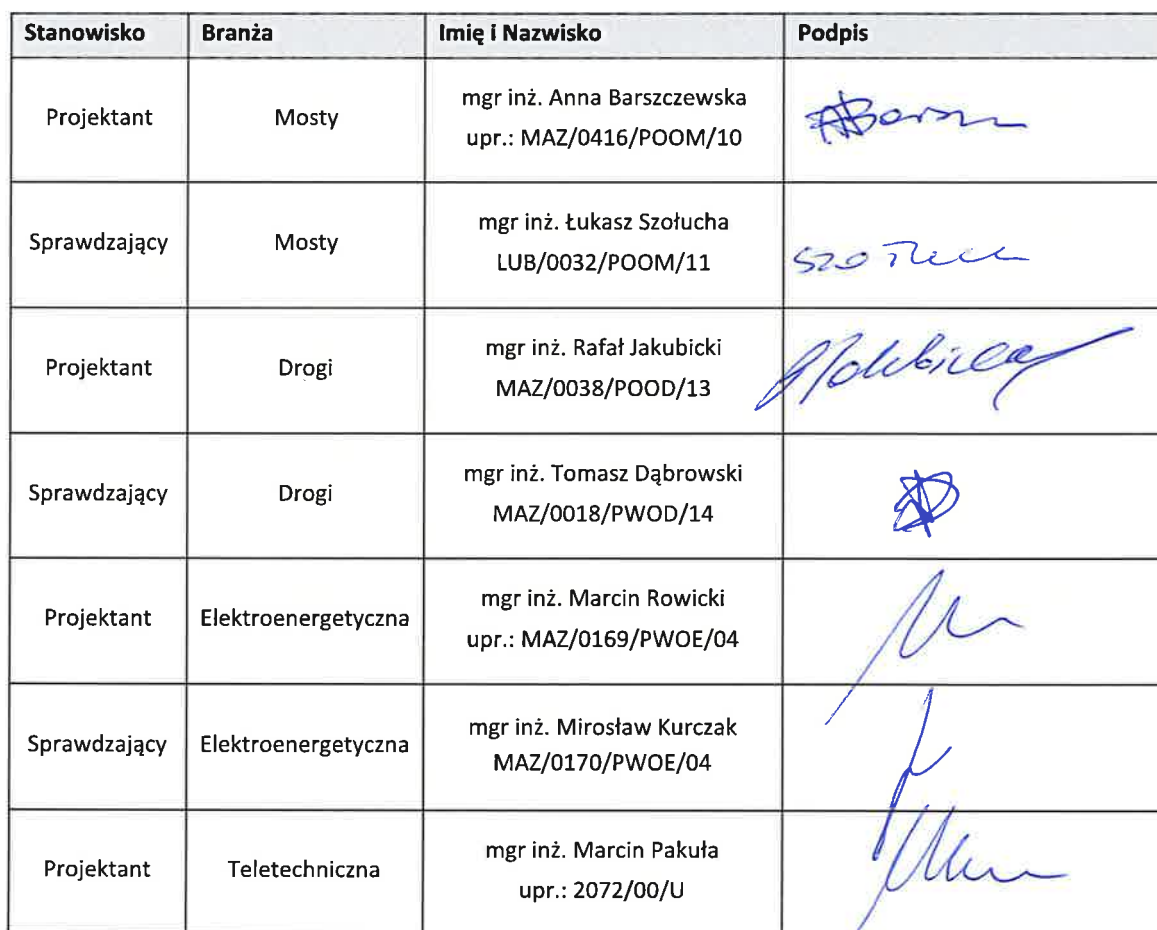 Stanowisko Branża Imię i Nazwisko Podpis
Projektant Mosty mgr inż. Anna Barszczewska
upr.: MAZ/0416/POOM/10
Sprawdzający Mosty mgr inż. Łukasz Szołucha
LUB/0032/POOM/11
Projektant Drogi mgr inż. Rafał Jakubicki
MAZ/0038/POOD/13
Sprawdzający Drogi mgr inż. Tomasz Dąbrowski
MAZ/0018/PWOD/14
Projektant Elektroenergetyczna mgr inż. Marcin Rowicki
upr.: MAZ/0169/PWOE/04
Sprawdzający Elektroenergetyczna mgr inż. Mirosław Kurczak
MAZ/0170/PWOE/04
Projektant Teletechniczna mgr inż. Marcin Pakuła
upr.: 2072/00/U